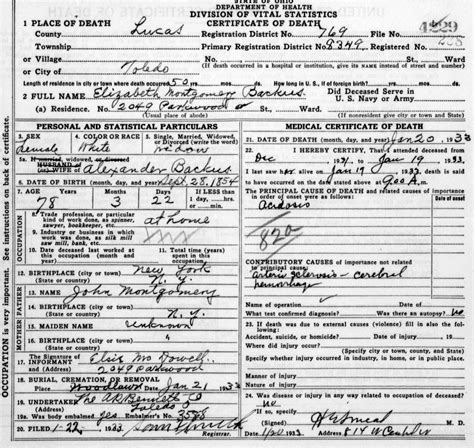 STATE OF OHIO
DEPARTMENT OF HEALTH
DIVISION OF VITAL STATISTICS
1 PLACE OF DEATH CERTIFICATE OF DEATH 4229
County Lucas Registration District No. 769 File No.
Township Primary Registration District No. 8349 Registered No.
or Village
or City of Toledo No. St. Ward
(If death occurred in a hospital or institution, give its NAME instead of street and number)
Length of residence in city or town where death occurred 50 yrs. mos. ds. How long in U. S., if of foreign birth? yrs. mos. ds.
2 FULL NAME Elizabeth Montgomery Backus Did Deceased Serve in U. S. Navy or Army
(a) Residence. No. 2049 Parkwood St., Ward.
(Usual place of abode) (If nonresident give city or town and State)
PERSONAL AND STATISTICAL PARTICULARS
3. SEX 4. COLOR OR RACE 5. Single, Married, Widowed, or Divorced (write the word)
female White widow
5a. If married, widowed, or divorced
HUSBAND of
(or) WIFE of Alexander Backus
6. DATE OF BIRTH (month, day, and year) Sept. 28, 1854
7. AGE Years Months Days
78 3 22
8. Trade, profession, or particular kind of work done, as spinner, sawyer, bookkeeper, etc. at home
9. Industry or business in which work was done, as silk mill, saw mill, bank, etc.
10. Date deceased last worked at this occupation (month and year)
11. Total time (years) spent in this occupation
12. BIRTHPLACE (city or town) New York
(State or country) N.Y.
13. NAME John Montgomery
14. BIRTHPLACE (city or town)
(State or country) N.Y.
15. MAIDEN NAME unknown
16. BIRTHPLACE (city or town)
(State or country)
17. The Signature of Informant Elsie McDowell
(Address) 2049 Parkwood
18. BURIAL, CREMATION, OR REMOVAL
Place Woodlawn Date Jan 21 1933
19. UNDERTAKER The AR Bennett Co
(Address) Toledo
19a. Was body embalmed yes Embalmer's No.
20. FILED 1-22, 1933
MEDICAL CERTIFICATE OF DEATH
21. DATE OF DEATH (month, day, and year) Jan 20 1933
22. I HEREBY CERTIFY, That I attended deceased from
Dec 1931, to Jan 19 1933
I last saw her alive on Jan 19 1933 death is said
to have occurred on the date stated above 9:00 A.m.
The PRINCIPAL CAUSE OF DEATH and related causes
82a
CONTRIBUTORY CAUSES of importance not related to principal cause:
arterio sclerosis - cerebral
hemorrhage
Name of operation Date of
What test confirmed diagnosis? Was there an autopsy? no
23. If death was due to external causes (violence) fill in also the following:
Accident, suicide, or homicide? Date of injury
Where did injury occur?
Specify whether injury occurred in industry, in home, or in public place.
Manner of injury
Nature of injury
24. Was disease or injury in any way related to occupation of deceased?
no
If so, specify
(Signed) M. D.
1933 Address
OCCUPATION is very important. See instructions on back of certificate.
OCCUPATION
FATHER
MOTHER